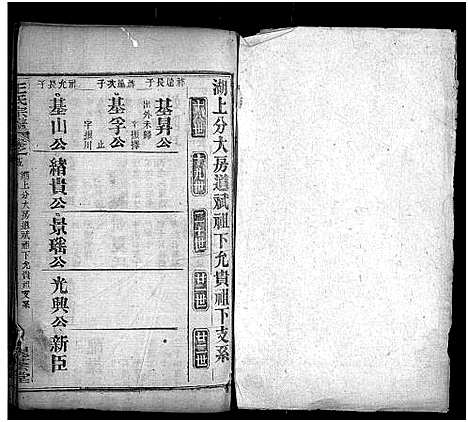 湖上分大房道斌祖下允貴祖下支系
十八世 十九世 二十世 廿一世 廿二世
祥遠長子
基昇公
字振擇
出外未歸
祥遠次子
基孚公
字振川
止
祥允長子
基山公 緒貴公 景瑤公 光興公 新臣
王氏宗譜
湖上分大房道斌祖下允貴祖支系